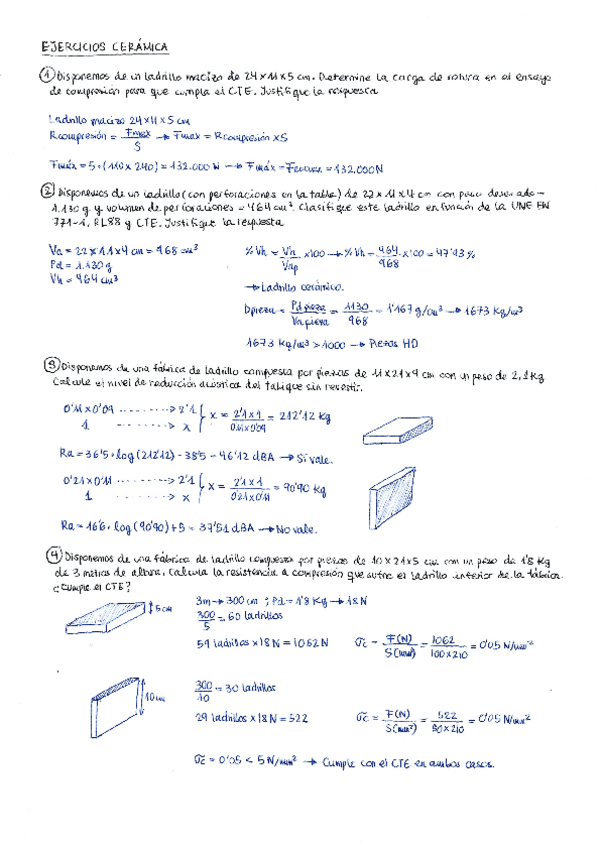 EJERCICIOS CERÁMICA
1 Disponemos de un ladrillo macizo de 24x11x5 cm. Determine la carga de rotura en el ensayo
de compresión para que cumpla el CTE. Justifique la respuesta
Ladrillo macizo 24x11x5 cm
Rcompresión = Fmáx / S → Fmáx = Rcompresión x S
Fmáx = 5·(110x240) = 132.000 N → Fmáx = Frotura = 132.000N
2 Disponemos de un ladrillo (con perforaciones en la tabla) de 22x11x4 cm con peso desecado =
1.130 g y volumen de perforaciones = 464 cm³. Clasifique este ladrillo en función de la UNE EN
771-1, RL88 y CTE. Justifique la respuesta
Va = 22x11x4 cm = 968 cm³
Pd = 1.130 g
Vh = 464 cm³
% Vh = Vh / Vap x100 → % Vh = 464 / 968 x100 = 47'93 %
→ Ladrillo cerámico.
Dpieza = Pd pieza / Va pieza = 1130 / 968 = 1'167 g/cm³ → 1673 Kg/m³
1673 Kg/m³ > 1000 → Piezas HD
3 Disponemos de una fábrica de ladrillo compuesta por piezas de 11x21x9 cm con un peso de 2,1 Kg.
Calcule el nivel de reducción acústica del tabique sin revestir.
0'11x0'09 → 2'1
1 → x
x = 2'1x1 / 0'11x0'09 = 212'12 Kg
Ra = 36'5 · log (212'12) - 38'5 = 46'12 dBA → Sí vale.
0'21x0'11 → 2'1
1 → x
x = 2'1x1 / 0'21x0'11 = 90'90 Kg
Ra = 16'6 · log (90'90) + 5 = 37'51 dBA → No vale.
4 Disponemos de una fábrica de ladrillo compuesta por piezas de 10x21x5 cm con un peso de 1'8 Kg
de 3 metros de altura. Calcula la resistencia a compresión que sufre el ladrillo inferior de la fábrica.
¿Cumple el CTE?
5 cm
3m → 300 cm ; Pd = 1'8 Kg → 18 N
300 / 5 = 60 ladrillos
59 ladrillos x 18 N = 1062 N
σc = F(N) / S(mm²) = 1062 / 100x210 = 0'05 N/mm²
10 cm
300 / 10 = 30 ladrillos
29 ladrillos x 18N = 522
σc = F(N) / S(mm²) = 522 / 50x210 = 0'05 N/mm²
σc = 0'05 < 5 N/mm² → Cumple con el CTE en ambos casos.